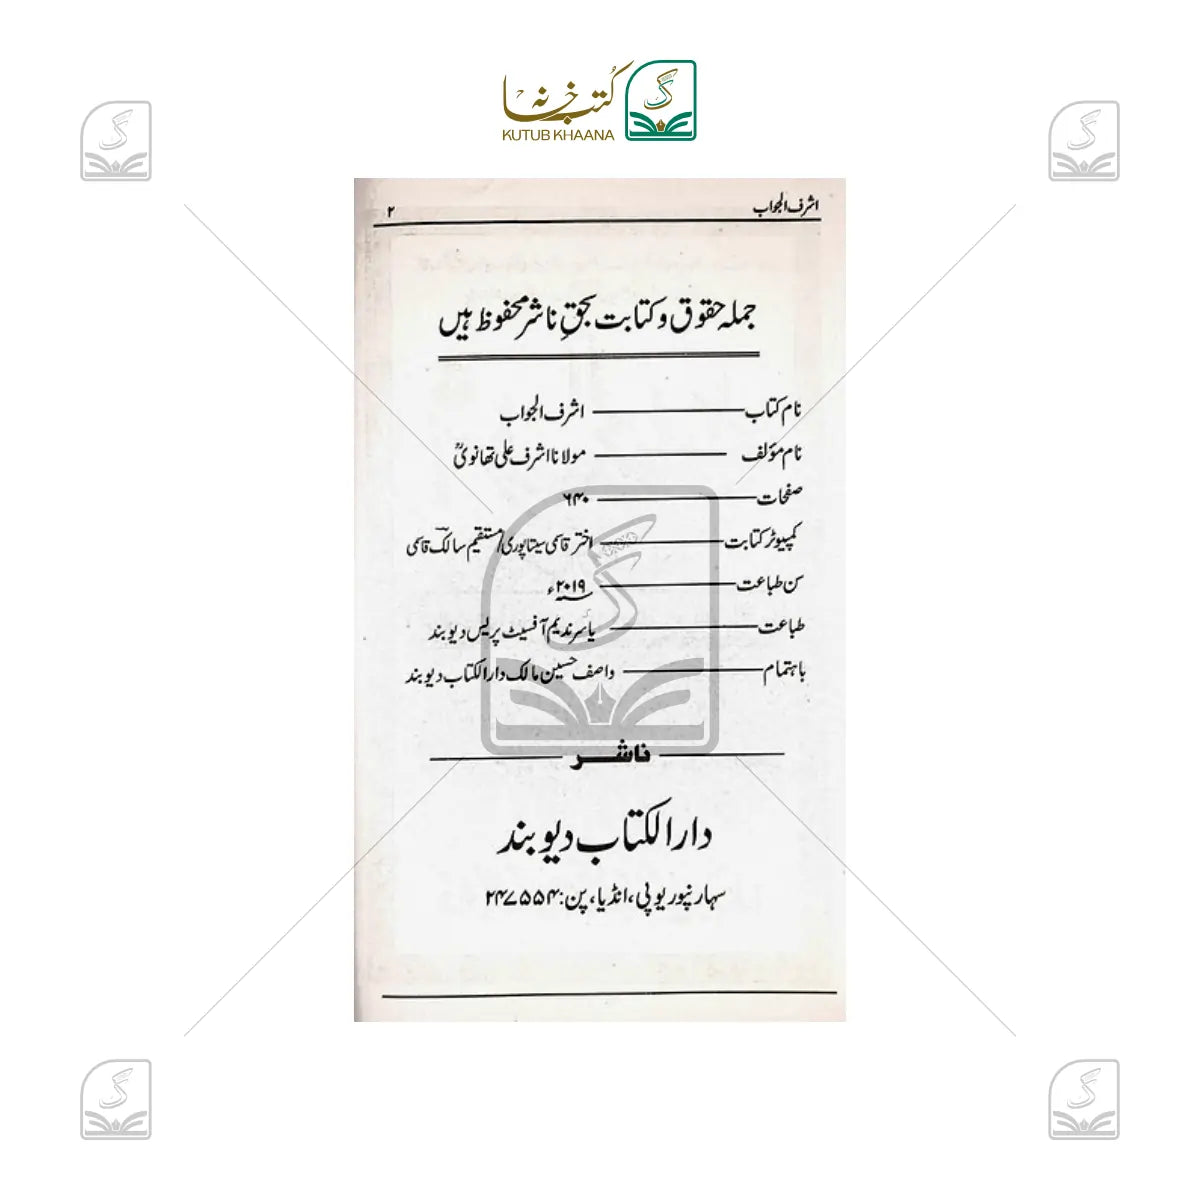 کتب خانہ
KUTUB KHAANA
اشرف الجواب ۲
جملہ حقوق و کتابت بحقِ ناشر محفوظ ہیں
نام کتاب ـــــــ اشرف الجواب
نام مؤلف ـــــــ مولانا اشرف علی تھانویؒ
صفحات ـــــــ ۶۴۰
کمپیوٹر کتابت ـــــــ اختر قاسمی سیتاپوری/مستقیم سالک قاسمی
سن طباعت ـــــــ ۲۰۱۹ء
طباعت ـــــــ یاسر ندیم آفسیٹ پریس دیوبند
باہتمام ـــــــ واصف حسین مالک دارالکتاب دیوبند
ناشر
دارالکتاب دیوبند
سہارنپور یوپی، انڈیا، پن: ۲۴۷۵۵۴